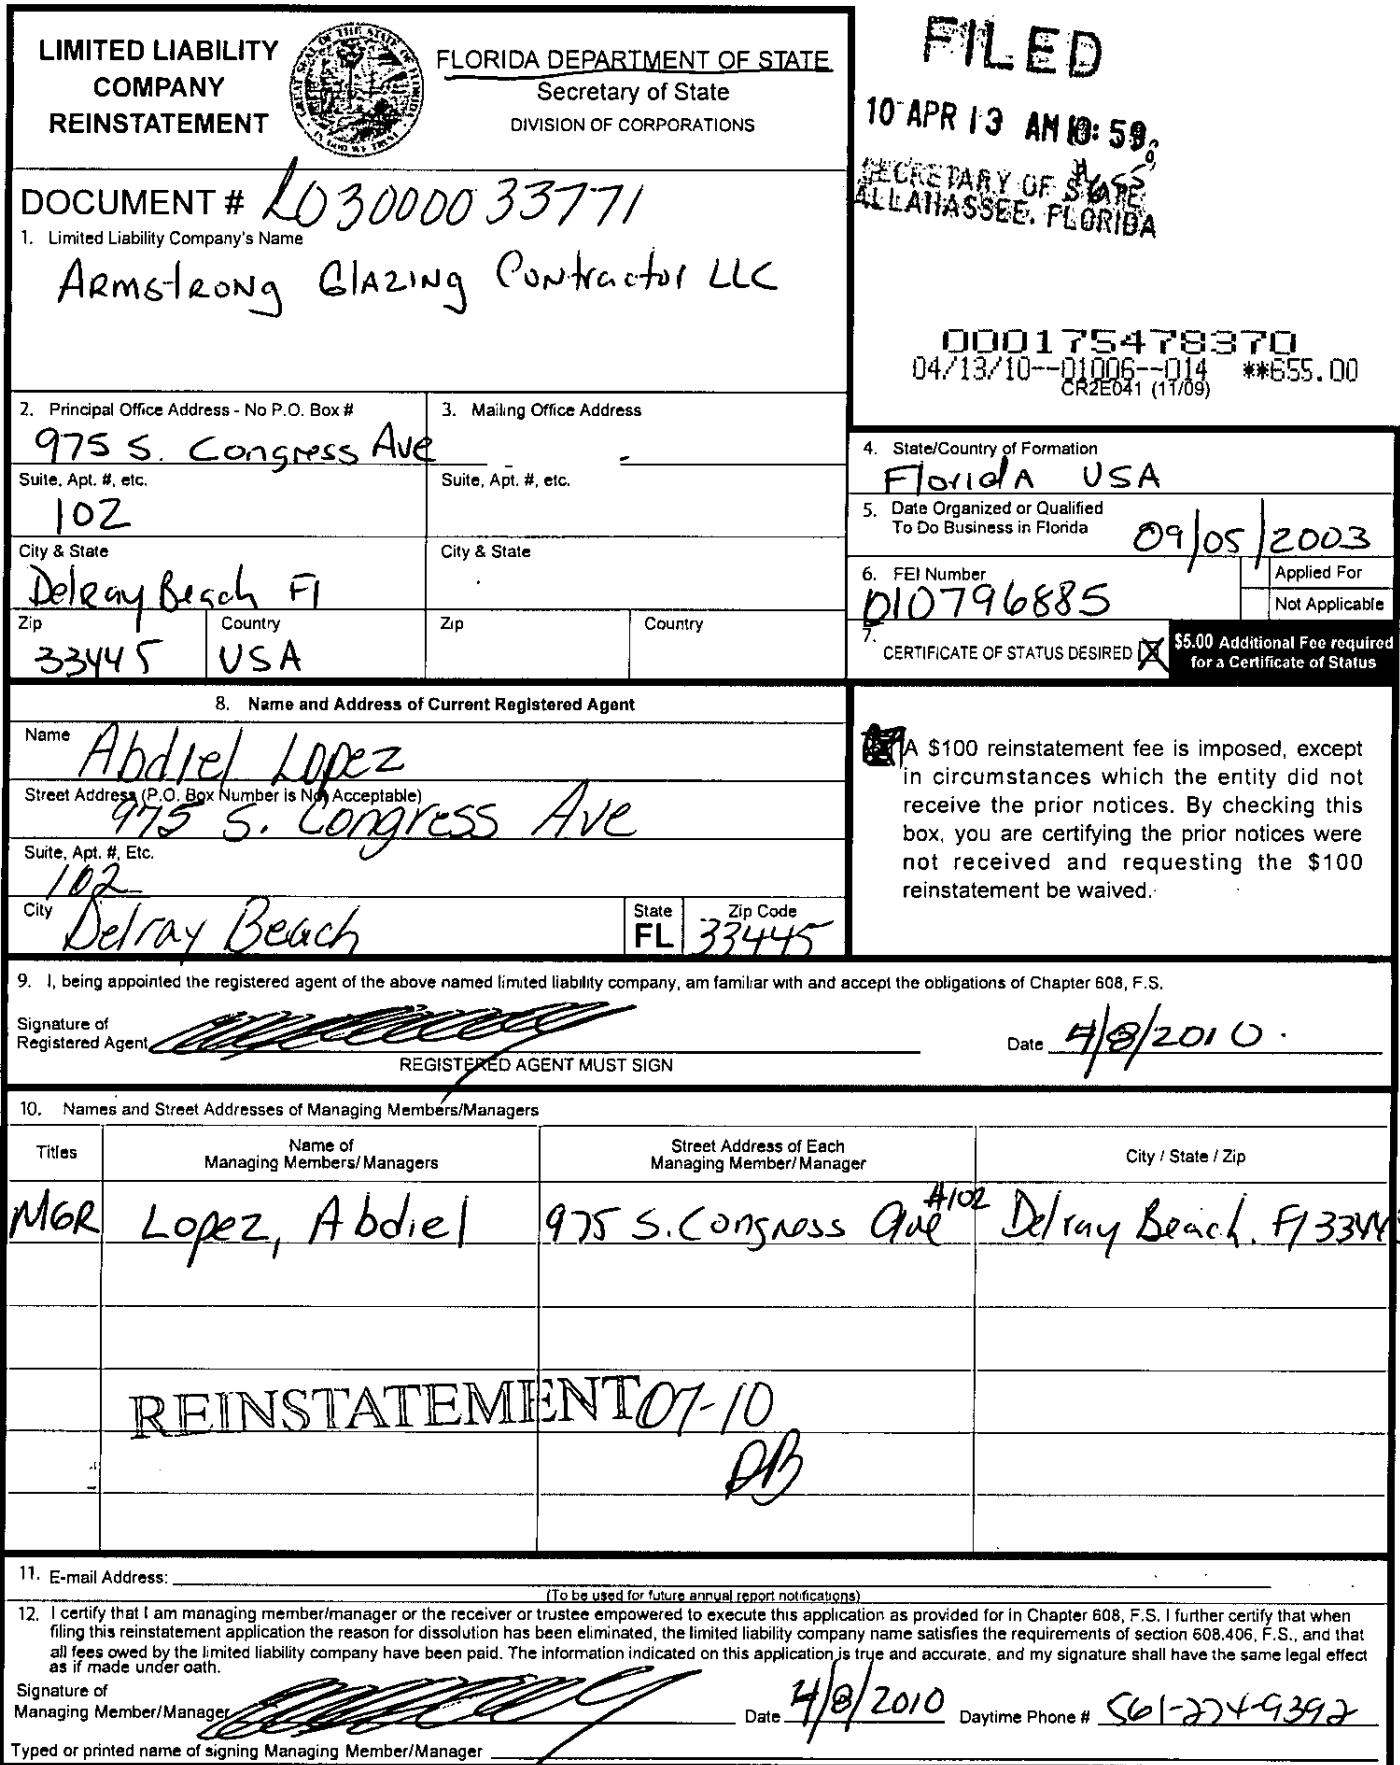 LIMITED LIABILITY
COMPANY
REINSTATEMENT
FLORIDA DEPARTMENT OF STATE
Secretary of State
DIVISION OF CORPORATIONS
FILED
10 APR 13 AM 59
SECRETARY OF STATE
ALLAHASSEE, FLORIDA
DOCUMENT # L03000033771
1. Limited Liability Company's Name
Armstrong Glazing Contractor LLC
000175478370
04/13/10--01006--014 **655.00
CR2E041 (11/09)
2. Principal Office Address - No P.O. Box #
975 S. Congress Ave
3. Mailing Office Address
Suite, Apt. #, etc.
102
Suite, Apt. #, etc.
City & State
Delray Beach Fl
City & State
Zip
33445
Country
USA
Zip
Country
4. State/Country of Formation
Florida USA
5. Date Organized or Qualified
To Do Business in Florida
09/05/2003
6. FEI Number
010796885
Applied For
Not Applicable
7. CERTIFICATE OF STATUS DESIRED
$5.00 Additional Fee required
for a Certificate of Status
8. Name and Address of Current Registered Agent
Name Abdiel Lopez
Street Address (P.O. Box Number is Not Acceptable)
975 S. Congress Ave
Suite, Apt. #, Etc.
102
City Delray Beach
State
FL
Zip Code
33445
A $100 reinstatement fee is imposed, except
in circumstances which the entity did not
receive the prior notices. By checking this
box, you are certifying the prior notices were
not received and requesting the $100
reinstatement be waived.
9. I, being appointed the registered agent of the above named limited liability company, am familiar with and accept the obligations of Chapter 608, F.S.
Signature of
Registered Agent
Date 4/8/2010
REGISTERED AGENT MUST SIGN
10. Names and Street Addresses of Managing Members/Managers
Titles
Name of
Managing Members/Managers
Street Address of Each
Managing Member/Manager
City / State / Zip
MGR Lopez, Abdiel 975 S. Congress Ave #102 Delray Beach. Fl 3344
REINSTATEMENT 07-10
DB
11. E-mail Address:
(To be used for future annual report notifications)
12. I certify that I am managing member/manager or the receiver or trustee empowered to execute this application as provided for in Chapter 608, F.S. I further certify that when
filing this reinstatement application the reason for dissolution has been eliminated, the limited liability company name satisfies the requirements of section 608.406, F.S., and that
all fees owed by the limited liability company have been paid. The information indicated on this application is true and accurate, and my signature shall have the same legal effect
as if made under oath.
Signature of
Managing Member/Manager
Date 4/8/2010
Daytime Phone # 561-274-9392
Typed or printed name of signing Managing Member/Manager